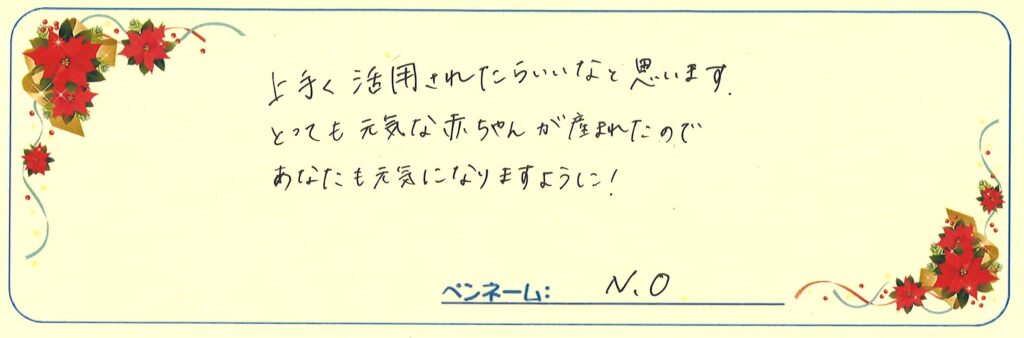 上手く活用されたらいいなと思います.
とっても元気な赤ちゃんが産まれたので
あなたも元気になりますように!
ペンネーム: N.O